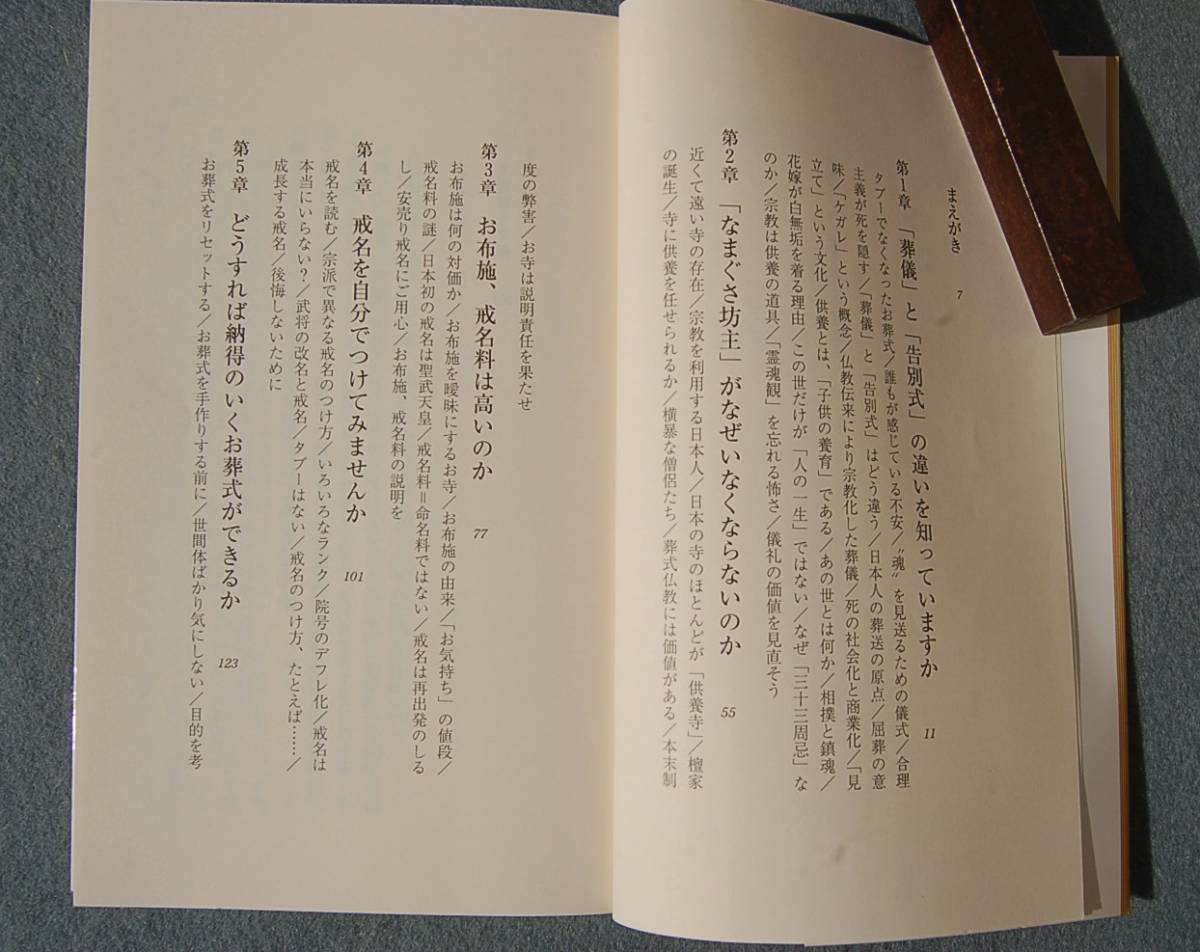 まえがき 7
第1章 「葬儀」と「告別式」の違いを知っていますか 11
タブーでなくなったお葬式／誰もが感じている不安／〝魂〟を見送るための儀式／合理
主義が死を隠す／「葬儀」と「告別式」はどう違う／日本人の葬送の原点／屈葬の意
味／「ケガレ」という概念／仏教伝来により宗教化した葬儀／死の社会化と商業化／「見
立て」という文化／供養とは、「子供の養育」である／あの世とは何か／相撲と鎮魂／
花嫁が白無垢を着る理由／この世だけが「人の一生」ではない／なぜ「三十三周忌」な
のか／宗教は供養の道具／「霊魂観」を忘れる怖さ／儀礼の価値を見直そう
第2章 「なまぐさ坊主」がなぜいなくならないのか 55
近くて遠い寺の存在／宗教を利用する日本人／日本の寺のほとんどが「供養寺」／檀家
の誕生／寺に供養を任せられるか／横暴な僧侶たち／葬式仏教には価値がある／本末制
度の弊害／お寺は説明責任を果たせ
第3章 お布施、戒名料は高いのか 77
お布施は何の対価か／お布施を曖昧にするお寺／お布施の由来／「お気持ち」の値段／
戒名料の謎／日本初の戒名は聖武天皇／戒名料＝命名料ではない／戒名は再出発のしる
し／安売り戒名にご用心／お布施、戒名料の説明を
第4章 戒名を自分でつけてみませんか 101
戒名を読む／宗派で異なる戒名のつけ方／いろいろなランク／院号のデフレ化／戒名は
本当にいらない？／武将の改名と戒名／タブーはない／戒名のつけ方、たとえば……／
成長する戒名／後悔しないために
第5章 どうすれば納得のいくお葬式ができるか 123
お葬式をリセットする／お葬式を手作りする前に／世間体ばかり気にしない／目的を考